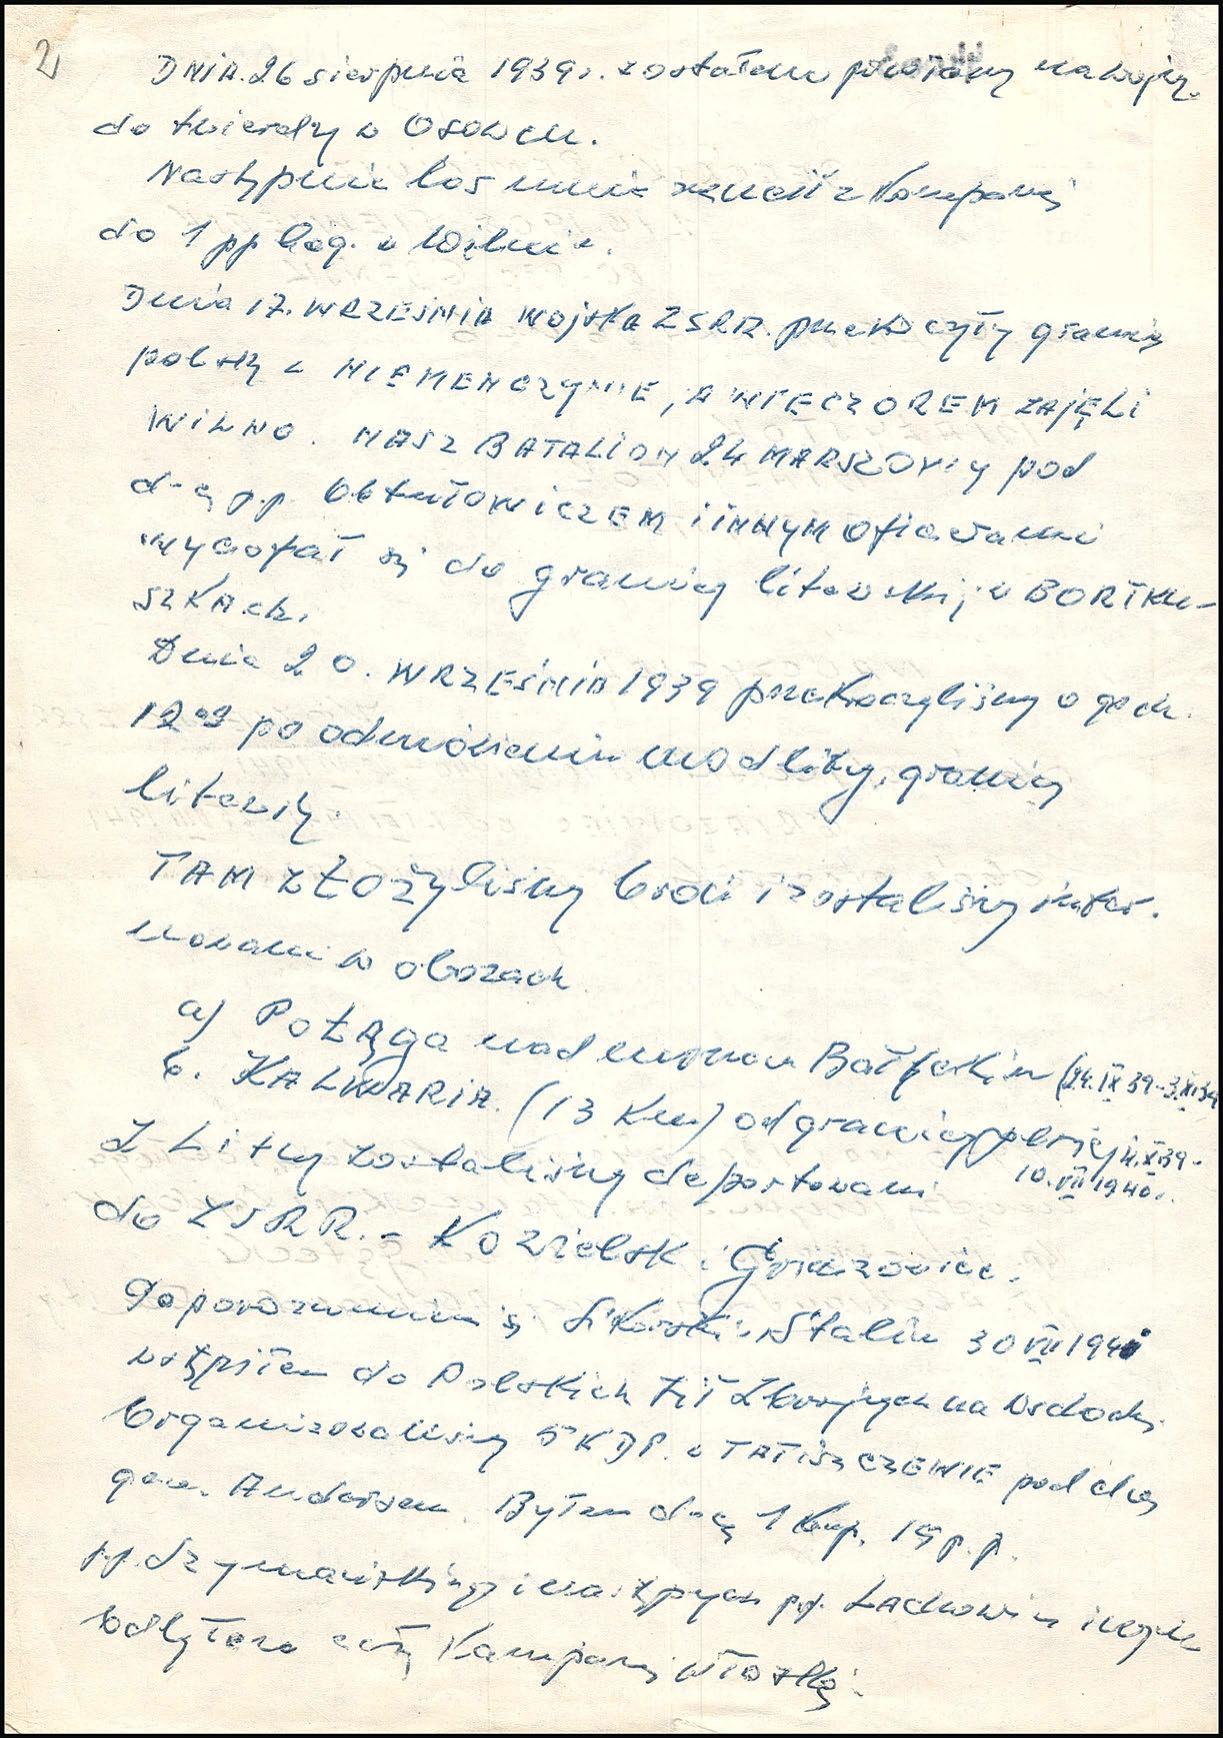 2
DNIA 26 sierpnia 1939r. zostałem powołany na wojnę
do twierdzy w Osowcu.
Następnie los mnie rzucił z Kompanią
do 1 pp Leg. w Wilnie.
Dnia 17. WRZEŚNIA WOJSKA ZSRR. przekroczyły granicę
polską w NIEMENCZYNIE, A WIECZOREM ZAJĘLI
WILNO. NASZ BATALION 24 MARSZOWY pod
d-cą p.p. ObtułowICZEM i INNYM oficerami
wycofał się do granicy litewskiej w BORTKU-
SZKAch.
Dnia 20. WRZEŚNIA 1939 przekroczyliśmy o godz.
12 po odmówieniu modlitwy, granicę
litewską.
TAM ZŁOŻyliśmy broń i zostaliśmy inter-
nowani w obozach
a) POŁĄga nad morzem Bałtyckim (24.IX 39-3.XI.39
b. KALWARIA. (13 Km) od granicy 4.XI39-
10.VII 1940r.
Z Litwy zostaliśmy deportowani
do ZSRR. - Kozielsk i Griazowiec.
Po porozumieniu się Sikorski-Stalin 30 VII 1941
wstąpiłem do Polskich Sił Zbrojnych na Wschodzie.
Organizowaliśmy 5 KDP. w TATISZCZEWIE pod d-cą
gen. Andersem. Byłem d-cą 1 komp. 15 p.p.
p.p. Szymańskiego i następnych pp. Lachowicz i
odbyłem całą Kampanię Włoską.